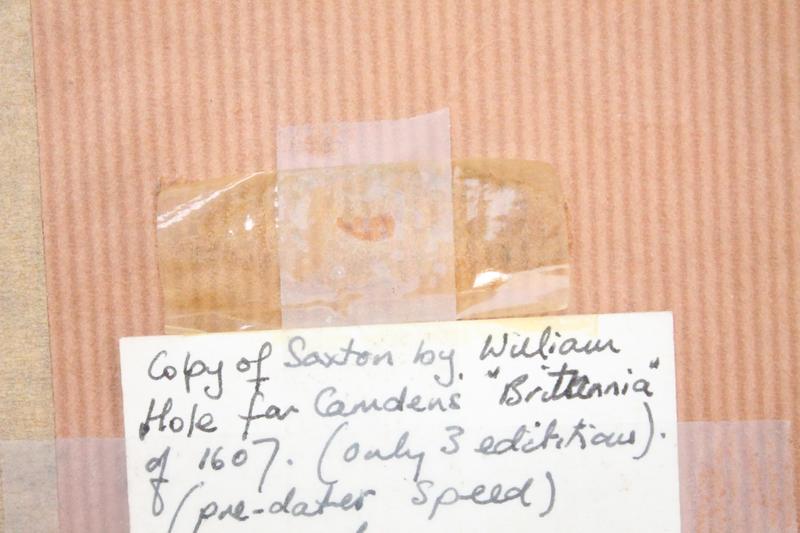 Copy of Saxton by. William
Hole for Camdens "Brittannia"
of 1607. (only 3 edititions).
(pre-dates Speed)